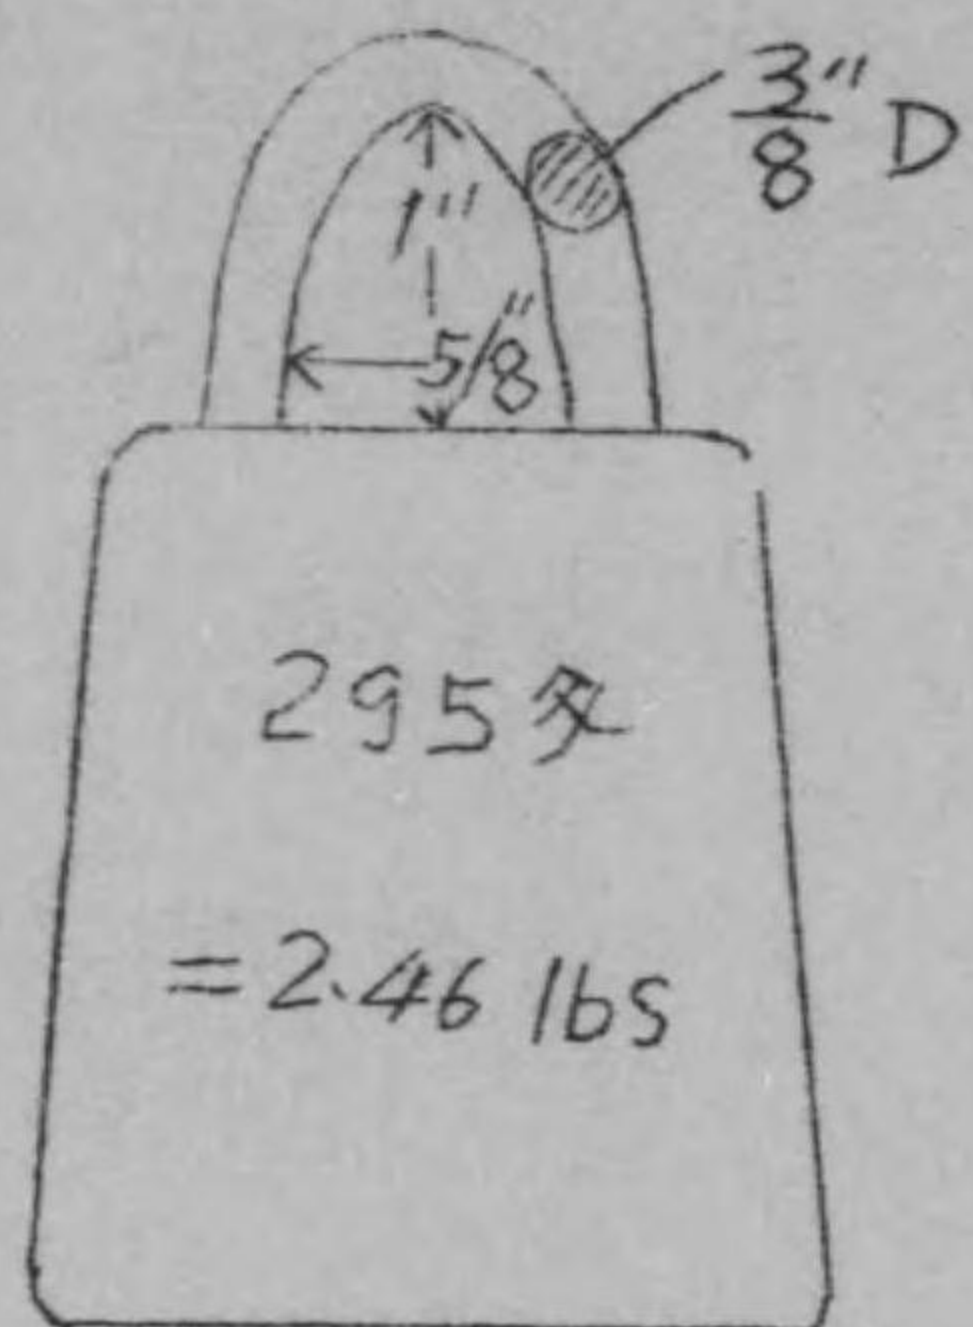 3/8" D
1"
5/8"
295匁
=2.46 lbs